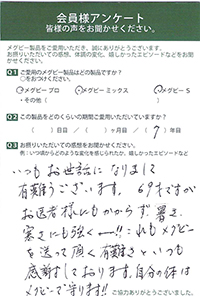 会員様アンケート
皆様の声をお聞かせください。
メグビー製品をご愛用いただき、誠にありがとうございます。
お摂りいただいての感想、体調の変化、嬉しかったエピソードなどをお聞かせください。
Q1 ご愛用のメグビー製品はどの製品ですか?
○をおつけください。
・メグビー プロ ・メグビー ミックス ・メグビー S
・その他( )
Q2 この製品をどのくらいの期間ご愛用いただいていますか?
( )日目 / ( )ヶ月目 / ( 7 )年目
Q3 お摂りいただいての感想をお聞かせください。
例:いつ頃からどのような変化を感じられたか、嬉しかったエピソードなど
いつもお世話になりまして
有難うございます。69才ですが
お医者様にもかからず、暑さ、
寒さにも強く ー!!これもメグビー
を送って頂く有難さといつも
感謝しております。自分の体は
メグビーで守ります!!
ご協力ありがとうございました。